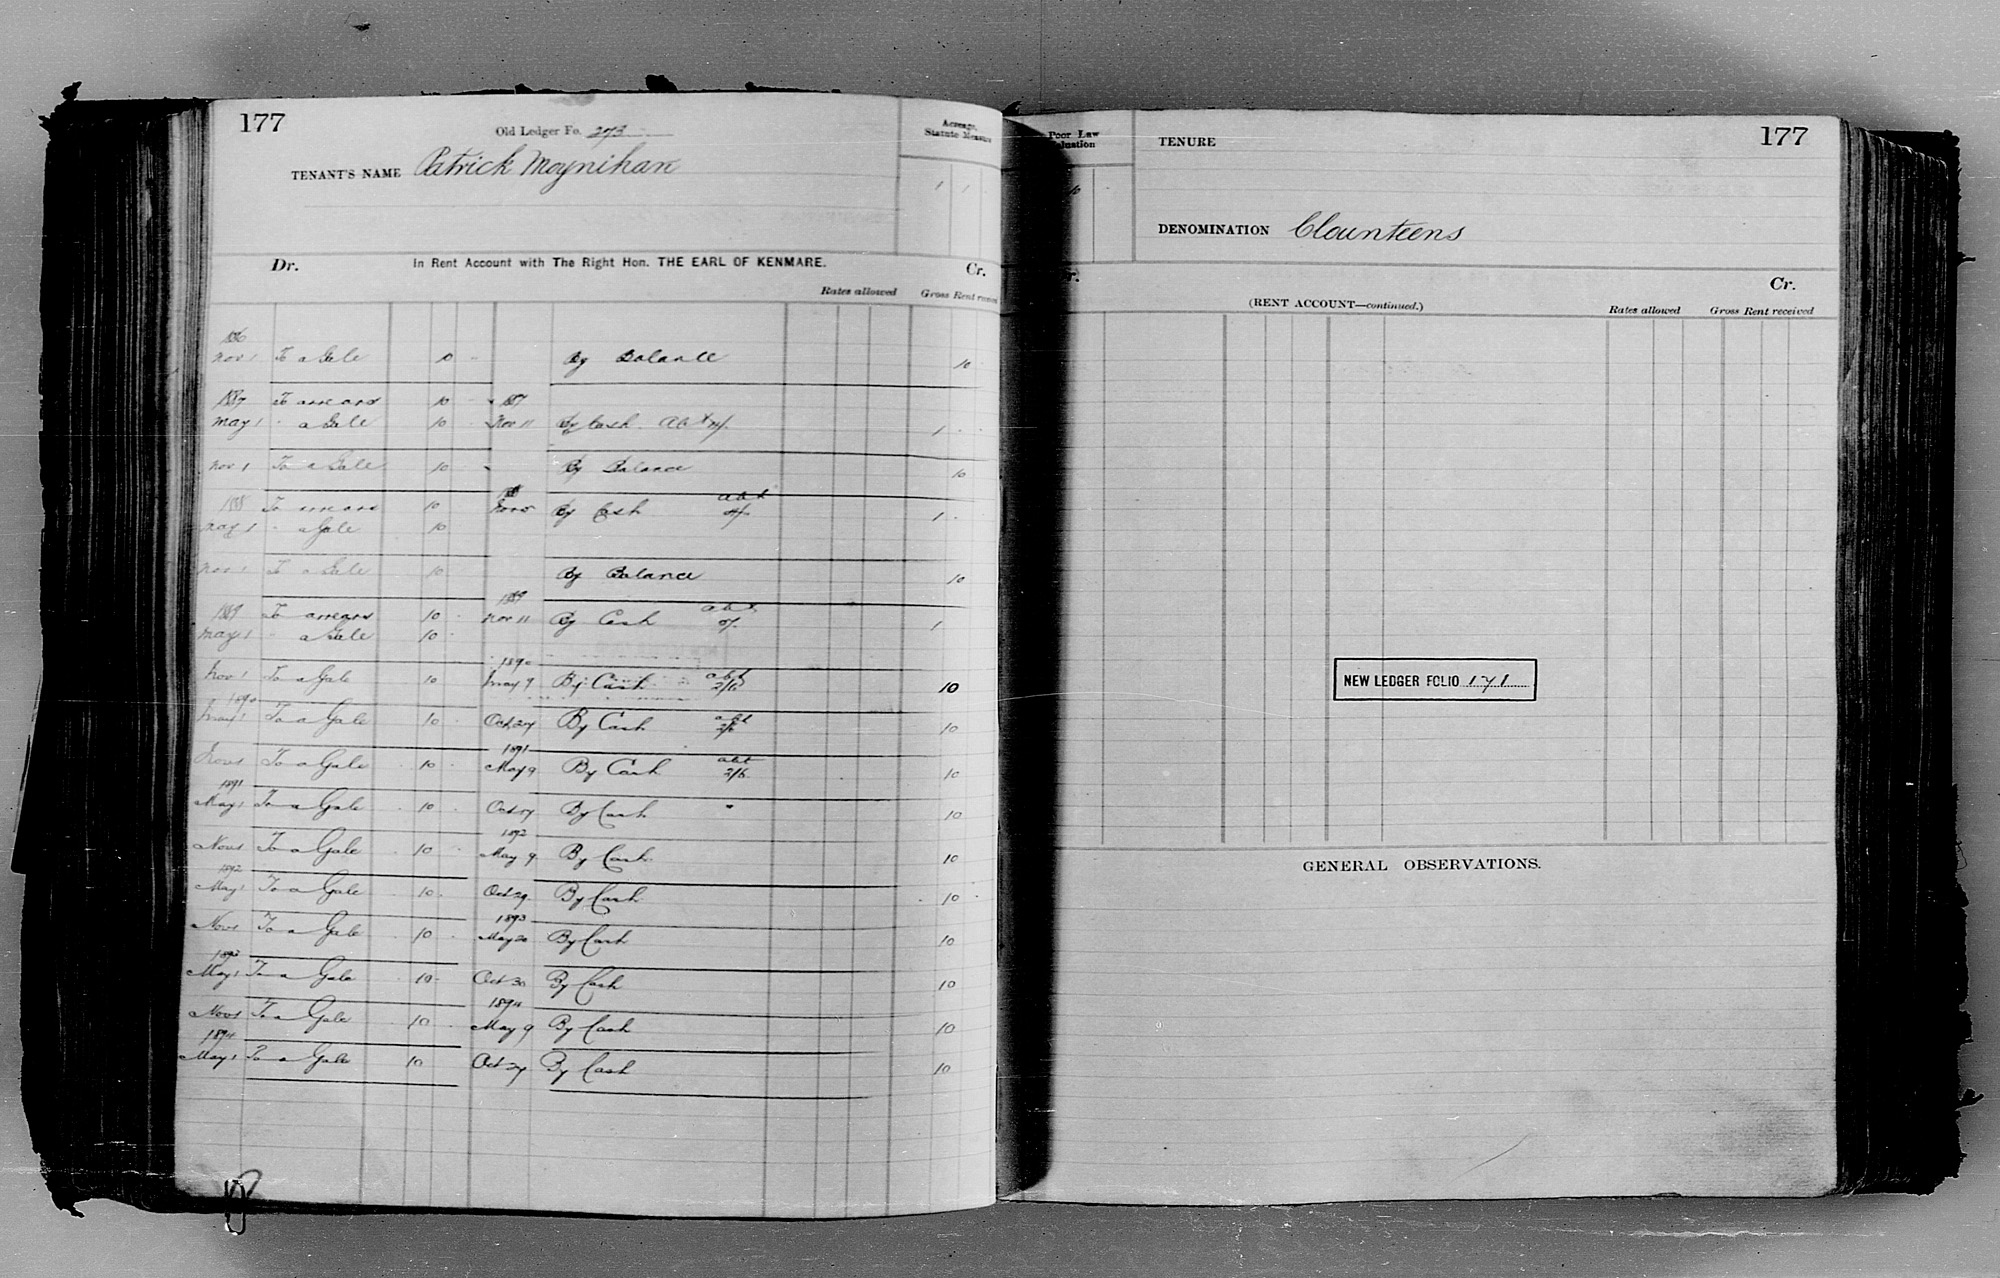 177
Old Ledger Fo. 273
Acreage, Statute Measure
TENANT'S NAME Patrick Moynihan
1 1
Dr. In Rent Account with The Right Hon. THE EARL OF KENMARE. Cr.
Rates allowed Gross Rent
1886
Nov 1 To a Gale 10 - By Balance 10
1887 To arrears 10 - 1887
May 1 " a Gale 10 - Nov 11 By Cash 1 - -
Nov 1 To a Gale 10 - By Balance 10
1888 To arrears 10 Nov By Cash abt 1 -
May 1 " a Gale 10
Nov 1 To a Gale 10 By Balance 10
1889
1889 To arrears 10 - Nov 11 By Cash abt 1
May 1 " a Gale 10 -
1890
Nov 1 To a Gale 10 May 9 By Cash abt 2/6 10
1890
May 1 To a Gale 10 - Oct 27 By Cash abt 2/6 10
1891
Nov 1 To a Gale 10 - May 9 By Cash abt 2/6 10
1891
May 1 To a Gale 10 - Oct 17 By Cash " 10
1892
Nov 1 To a Gale 10 - May 9 By Cash 10
1892
May 1 To a Gale 10 - Oct 29 By Cash 10 -
1893
Nov 1 To a Gale 10 - May 20 By Cash 10
1893
May 1 To a Gale 10 - Oct 30 By Cash 10
1894
Nov 1 To a Gale 10 - May 9 By Cash 10
1894
May 1 To a Gale 10 Oct 27 By Cash 10
Poor Law
10 -
TENURE
177
DENOMINATION Clounteens
Cr.
(RENT ACCOUNT—continued.)
Rates allowed Gross Rent received
NEW LEDGER FOLIO 171
GENERAL OBSERVATIONS.